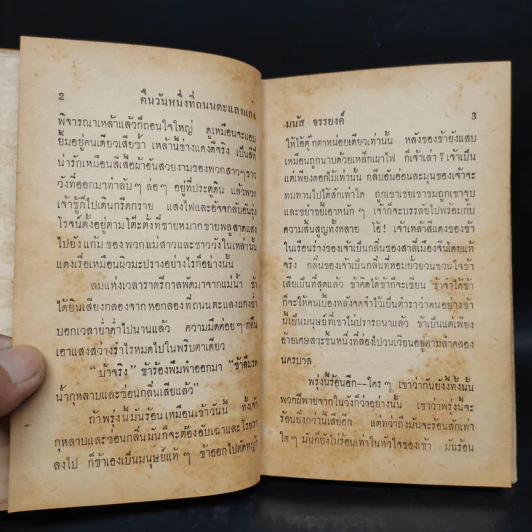 2 คืนวันหนึ่งที่ถนนตะแลงแกง
พิจารณาเหล้าแล้วก็ถอนใจใหญ่ ดูเหมือนจะแอบ
ยิ้มอยู่คนเดียวเสียซ้ำ เหล้านี้ช่างแดงดีจริง เป็นสีที่
น่ารักเหมือนสีเสื้อผ้าอันสวยงามของพวกสาวๆชาว
วังที่ออกมาท่าลับๆ ล่อๆ อยู่ที่ประตูดิน แล้วพวก
เจ้าชู้ก็ไปเดินกรีดกราย แสงไฟและอัจกลับอันรุ่ง
โรจน์ตั้งอยู่ตามโต๊ะตั้งที่ขายหมากขายพลูสาดแสง
ไปยังแก้มของพวกแม่สาวและชาววังในเหล่านั้น
แดงเรื่อเหมือนผิวมะปรางอย่างไรก็อย่างนั้น
ลมแห่งเวลาราตรีกาลพัดมาจากแม่น้ำ ข้า
ได้ยินเสียงกลองจากหอกลองที่ถนนตะแลงแกงย่ำ
บอกเวลาย่ำค่ำไปนานแล้ว ความมืดค่อยๆ กลืน
เอาแสงสว่างรำไรหมดไปในพริบตาเดียว
“บ้าจริง” ข้าร้องพึมพำออกมา “ข้าลืมรด
น้ำกุหลาบและซ่อนกลิ่นเสียแล้ว”
ถ้าพรุ่งนี้มันร้อนเหมือนเช้าวันนี้ ทั้งเจ้า
กุหลาบและซ่อนกลิ่นมันก็จะต้องอับเฉาและโรยรา
ลงไป ก็ข้าเองเป็นมนุษย์แท้ๆ ข้าออกไปตัดหญ้า
มนัส จรรยงค์ 3
ให้ไอ้ตูดตาหน่อยเดียวเท่านั้น หลังของข้ายังแสบ
เหมือนถูกนาบด้วยเหล็กเผาไฟ ก็เจ้าเล่า? เจ้าเป็น
แต่เพียงดอกไม้เท่านั้น กลีบอันอ่อนละมุนของเจ้าจะ
ทนทานไปได้สักเท่าใด ถูกเขาเชยเขาชมถูกเขาจูบ
และขยำขยี้เอาหนักๆ เจ้าก็จะบรรลัยไปพร้อมกับ
ความสิ้นสูญทั้งหลาย โอ้! เจ้าเหล้าสีแดงของข้า
ในเรือนร่างของเจ้าเป็นกลิ่นของสาลี่เมืองจีนโดยแท้
จริง กลิ่นของเจ้าเป็นกลิ่นที่หอมยั่วยวนชวนใจข้า
เสียเป็นที่สุดแล้ว ข้าคิดได้ข้าก็จะเขียน ข้าจำได้ข้า
ก็จะให้คนเบื้องหลังจดจำไว้เป็นตำราว่าคนอย่างข้า
นี้เป็นมนุษย์ที่เขาไม่ปรารถนาแล้ว ข้าเป็นแต่เพียง
อ้ายเศษสวะชิ้นหนึ่งที่ล่องไปวนเวียนอยู่ตามลำคลอง
นครบาล
พรุ่งนี้ร้อนอีก--ใครๆ เขาว่ากันยังงี้ทั้งนั้น
พวกผีพายจากในวังก็ว่าอย่างนั้น เขาว่าพรุ่งนี้จะ
ร้อนยิ่งกว่านี้เสียอีก แต่ทว่าถึงมันจะร้อนสักเท่า
ใดๆ มันก็ยังไม่ร้อนเท่าในหัวใจของเข้า มันร้อน